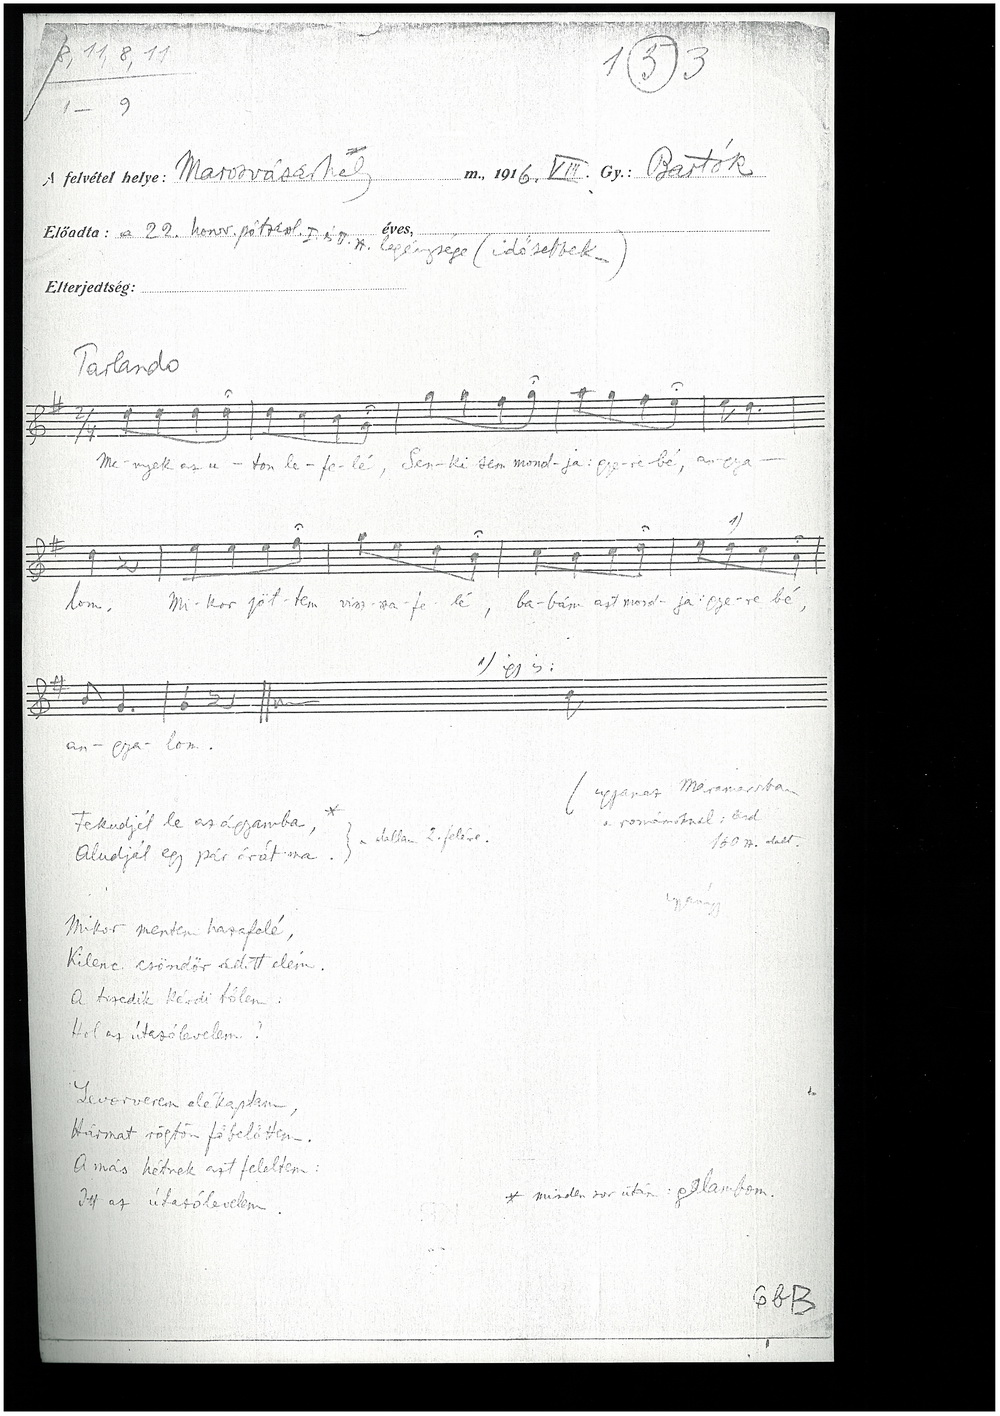 8, 11, 8, 11
1 5 3
1 — 9
A felvétel helye: Marosvásárhely m., 1916. VIII. Gy.: Bartók
Előadta: a 22. honv. pótzlj. I. és II. sz. éves,
legénysége (idősebbek)
Elterjedtség:
Parlando
2/4
Me-nyek az u-ton le-fe-lé, Sen-ki sem mond-ja: gye-re bé, an-gya—
1)
lom. Mi-kor jöt-tem visz-sza-fe-lé, ba-bám azt mond-ja: gye-re bé,
1) így is:
an-gya-lom.
(ugyanez Mármarosban
a románoknál; lásd
Feküdjél le az ágyamba,*
a dallam 2. felére.
160 sz. dalt.
Aludjál egy pár órát ma.
Mikor mentem hazafelé,
Kilenc csöndőr áditt elém.
A tizedik kérdi tőlem:
Hol az útazólevelem?
Levorverem elékaptam,
Hármat rögtön főbelőttem.
A más hétnek azt feleltem:
Itt az útazólevelem.
* minden sor után: galambom.
G b B